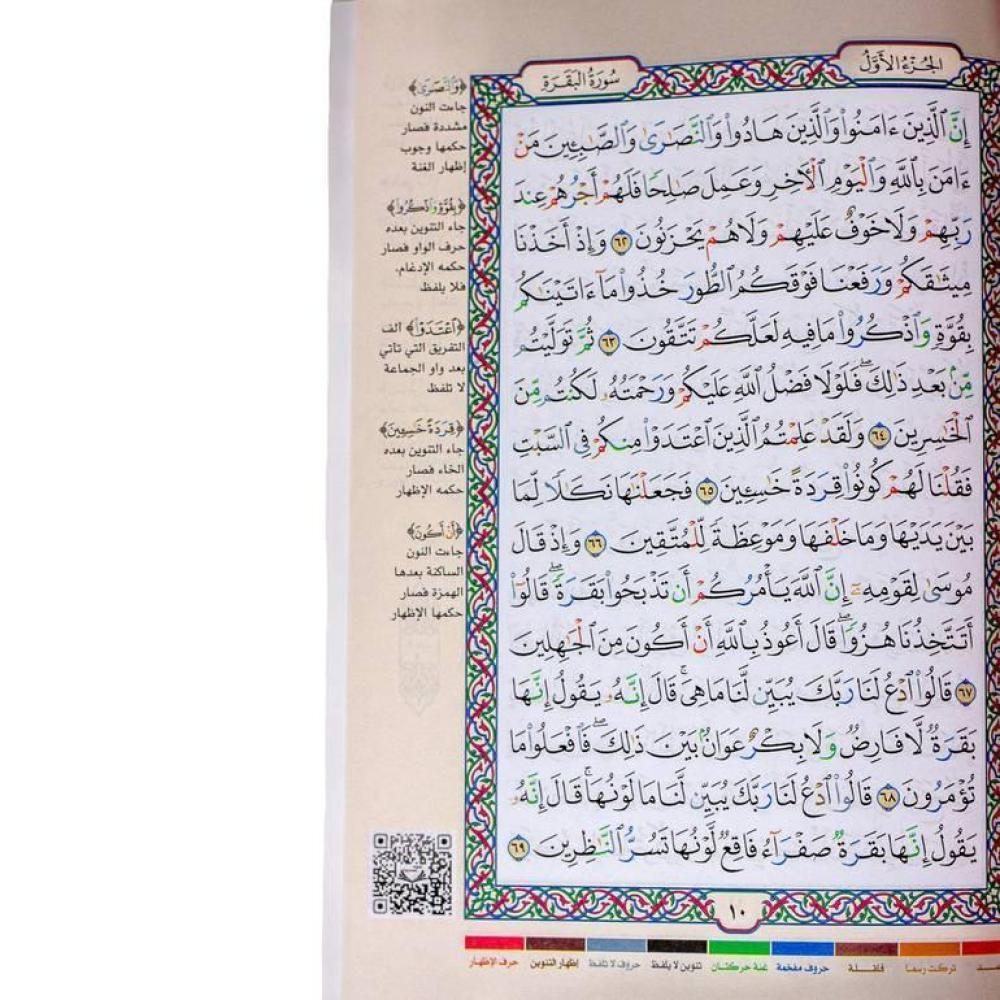 الجُزْءُ الأَوَّلُ
سُورَةُ البَقَرَةِ
إِنَّ ٱلَّذِينَ ءَامَنُوا۟ وَٱلَّذِينَ هَادُوا۟ وَٱلنَّصَـٰرَىٰ وَٱلصَّـٰبِـِٔينَ مَنْ
ءَامَنَ بِٱللَّهِ وَٱلْيَوْمِ ٱلْـَٔاخِرِ وَعَمِلَ صَـٰلِحًا فَلَهُمْ أَجْرُهُمْ عِندَ
رَبِّهِمْ وَلَا خَوْفٌ عَلَيْهِمْ وَلَا هُمْ يَحْزَنُونَ ٦٢ وَإِذْ أَخَذْنَا
مِيثَـٰقَكُمْ وَرَفَعْنَا فَوْقَكُمُ ٱلطُّورَ خُذُوا۟ مَآ ءَاتَيْنَـٰكُم
بِقُوَّةٍ وَٱذْكُرُوا۟ مَا فِيهِ لَعَلَّكُمْ تَتَّقُونَ ٦٣ ثُمَّ تَوَلَّيْتُم
مِّنۢ بَعْدِ ذَٰلِكَ ۖ فَلَوْلَا فَضْلُ ٱللَّهِ عَلَيْكُمْ وَرَحْمَتُهُۥ لَكُنتُم مِّنَ
ٱلْخَـٰسِرِينَ ٦٤ وَلَقَدْ عَلِمْتُمُ ٱلَّذِينَ ٱعْتَدَوْا۟ مِنكُمْ فِى ٱلسَّبْتِ
فَقُلْنَا لَهُمْ كُونُوا۟ قِرَدَةً خَـٰسِـِٔينَ ٦٥ فَجَعَلْنَـٰهَا نَكَـٰلًا لِّمَا
بَيْنَ يَدَيْهَا وَمَا خَلْفَهَا وَمَوْعِظَةً لِّلْمُتَّقِينَ ٦٦ وَإِذْ قَالَ
مُوسَىٰ لِقَوْمِهِۦٓ إِنَّ ٱللَّهَ يَأْمُرُكُمْ أَن تَذْبَحُوا۟ بَقَرَةً ۖ قَالُوٓا۟
أَتَتَّخِذُنَا هُزُوًا ۖ قَالَ أَعُوذُ بِٱللَّهِ أَنْ أَكُونَ مِنَ ٱلْجَـٰهِلِينَ
٦٧ قَالُوا۟ ٱدْعُ لَنَا رَبَّكَ يُبَيِّن لَّنَا مَا هِىَ ۚ قَالَ إِنَّهُۥ يَقُولُ إِنَّهَا
بَقَرَةٌ لَّا فَارِضٌ وَلَا بِكْرٌ عَوَانٌۢ بَيْنَ ذَٰلِكَ ۖ فَٱفْعَلُوا۟ مَا
تُؤْمَرُونَ ٦٨ قَالُوا۟ ٱدْعُ لَنَا رَبَّكَ يُبَيِّن لَّنَا مَا لَوْنُهَا ۚ قَالَ إِنَّهُۥ
يَقُولُ إِنَّهَا بَقَرَةٌ صَفْرَآءُ فَاقِعٌ لَّوْنُهَا تَسُرُّ ٱلنَّـٰظِرِينَ ٦٩
﴿وَٱلنَّصَـٰرَىٰ﴾
جاءت النون
مشددة فصار
حكمها وجوب
إظهار الغنة
﴿بِقُوَّةٍ وَٱذْكُرُوا۟﴾
جاء التنوين بعده
حرف الواو فصار
حكمه الإدغام،
فلا يلفظ
﴿ٱعْتَدَوْا۟﴾ الف
التفريق التي تأتي
بعد واو الجماعة
لا تلفظ
﴿قِرَدَةً خَـٰسِـِٔينَ﴾
جاء التنوين بعده
الخاء فصار
حكمه الإظهار
﴿أَنْ أَكُونَ﴾
جاءت النون
الساكنة بعدها
الهمزة فصار
حكمها الإظهار
١٠
تركت رسما
قلقلة
حروف مفخمة
غنة حركتان
تنوين لا يلفظ
حروف لا تلفظ
إظهار التنوين
حرف الإظهار